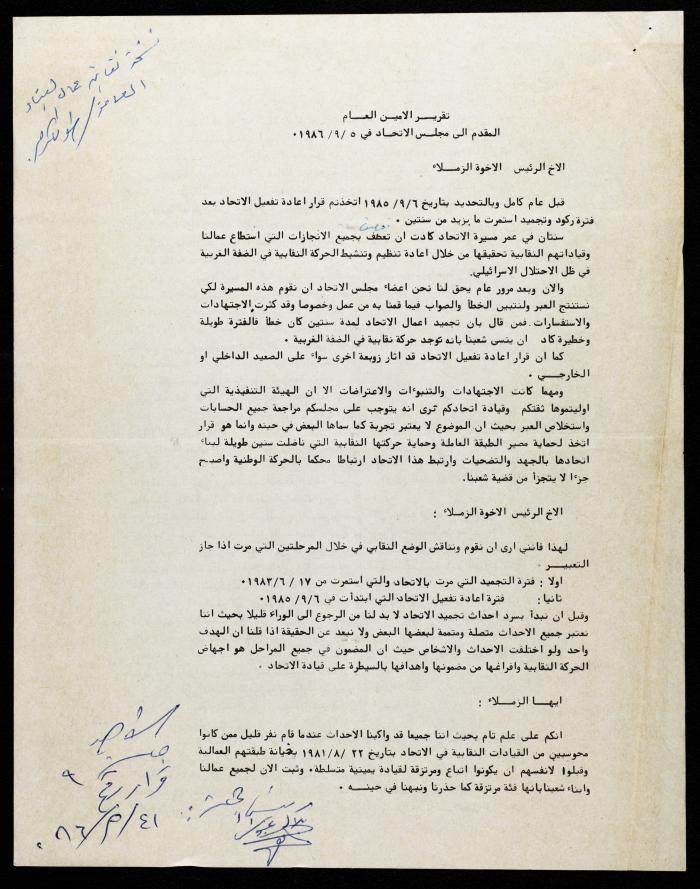 نسخة نقابة عمال البناء
تقريـر الاميـن العـام
المقدم الى مجلـس الاتحـاد في ٥ /٩ /١٩٨٦ ٠
الاخ الرئيس الاخوة الزمـلاء
قبل عام كامل وبالتحديد بتاريخ ٩/٦/ ١٩٨٥ اتخذتم قرار اعادة تفعيل الاتحاد بعد
فترة ركود وتجميد استمرت ما يزيد من سنتين ٠
سنتان في عمر مسيرة الاتحاد كادت ان تعصف بجميع الانجازات التي استطاع عمالنا
وقياداتهم النقابية تحقيقها من خلال اعادة تنظيم وتنشيط الحركة النقابية في الضفة الغربية
في ظل الاحتلال الاسرائيلي٠
والان وبعد مرور عام يحق لنا نحن اعضاء مجلس الاتحاد ان نقوم هذه المسيرة لكي
نستنتج العبر ولنتبين الخطأ والصواب فيما قمنا به من عمل وخصوصا وقد كثرت الاجتهادات
والاستفسارات فمن قال بان تجميد اعمال الاتحاد لمدة سنتين كان خطأ فالفترة طويلة
وخطيرة كاد ان ينسى شعبنا بانه توجد حركة نقابية في الضفة الغربية ٠
كما ان قرار اعادة تفعيل الاتحاد قد اثار زوبعة اخرى سواء على الصعيد الداخلي او
الخارجــي ٠
ومهما كانت الاجتهادات والتنبوءات والاعتراضات الا ان الهيئة التنفيذية التي
اوليتموها ثقتكم وقيادة اتحادكم ترى انه يتوجب على مجلسكم مراجعة جميع الحسابات
واستخلاص العبر بحيث ان الموضوع لا يعتبر تجربة كما سماها البعض في حينه وانما هو قرار
اتخذ لحماية مصير الطبقة العاملة وحماية حركتها النقابية التي ناضلت سنين طويلة لبناء
اتحادها بالجهد والتضحيات وارتبط هذا الاتحاد ارتباطا محكما بالحركة الوطنية واصبـح
جزءا لا يتجزأ من قضية شعبنا٠
الاخ الرئيس الاخوة الزمـلاء :
لهذا فانني ارى ان نقوم ونناقش الوضع النقابي في خلال المرحلتين التي مرت اذا جاز
التعبيـر ٠
اولا : فترة التجميد التي مرت بالاتحاد والتي استمرت من ١٧ / ٦/ ١٩٨٣٠
ثانيا: فترة اعادة تفعيل الاتحاد التي ابتدأت في ٩/٦/ ١٩٨٥٠
وقبل ان نبدأ بسرد احداث تجميد الاتحاد لا بد لنا من الرجوع الى الوراء قليلا بحيث اننا
نعتبر جميع الاحداث متصلة ومتممة لبعضها البعض ولا نبعد عن الحقيقة اذا قلنا ان الهدف
واحد ولو اختلفت الاحداث والاشخاص حيث ان المضمون في جميع المراحل هو اجهاض
الحركة النقابية وافراغها من مضمونها واهدافها بالسيطرة على قيادة الاتحاد ٠
ايهـا الزمـلاء :
انكم على علم تام بحيث اننا جميعا قد واكبنا الاحداث عندما قام نفر قليل ممن كانوا
محوسبين من القيادات النقابية في الاتحاد بتاريخ ٢٢ /٨/ ١٩٨١ بخيانة طبقتهم العمالية
وقبلوا لانفسهم ان يكونوا اتباع ومرتزقة لقيادة يمينية متسلطة٠ وثبت الان لجميع عمالنا
وابناء شعبنابانها فئة مرتزقة كما حذرنا ونبهنا في حينـه ٠